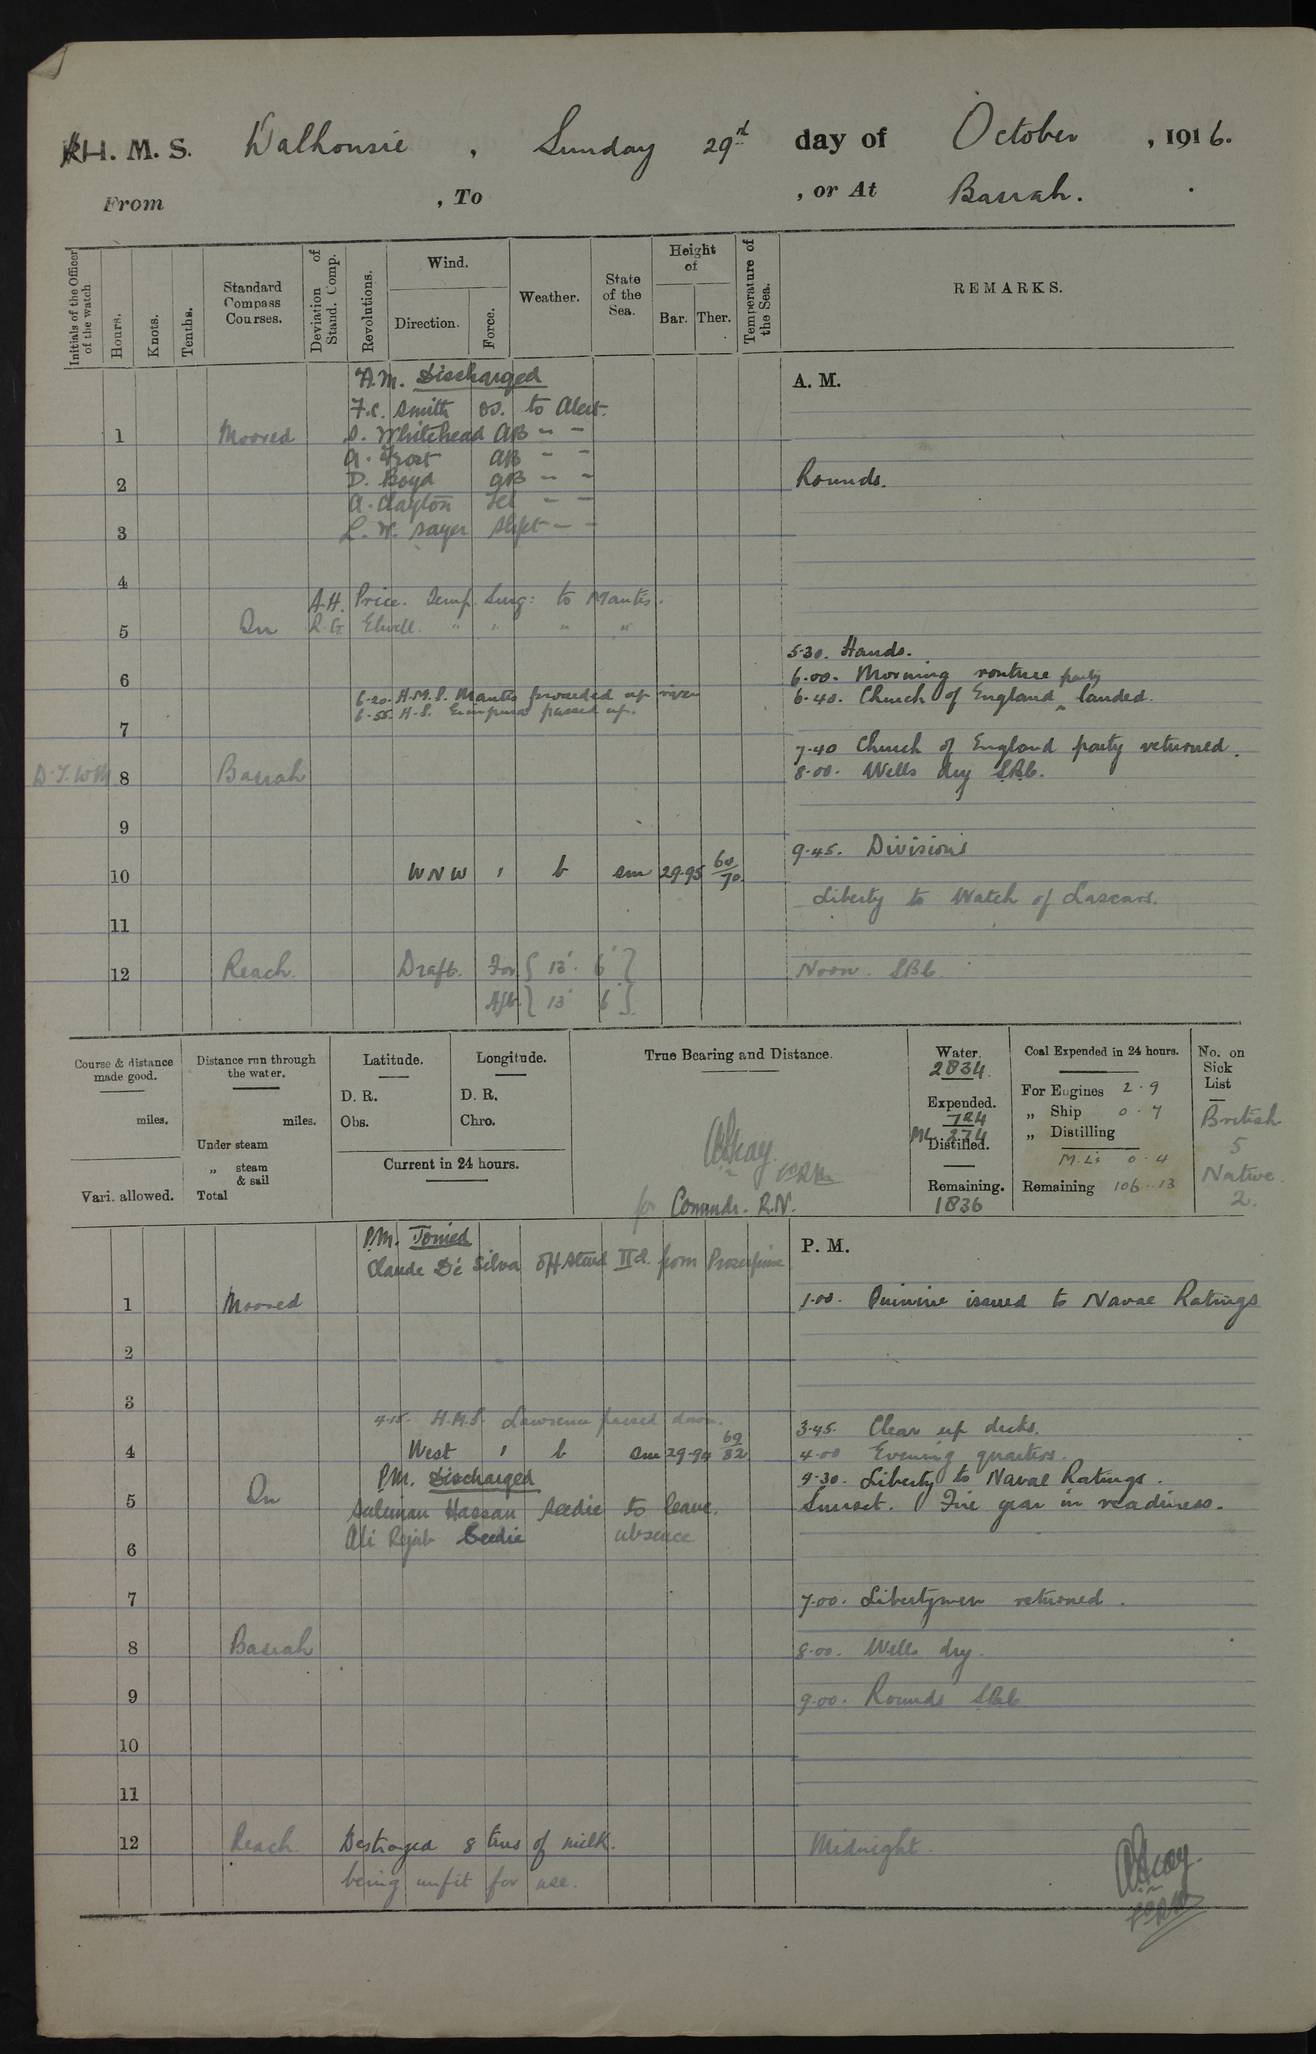 H. M. S. Dalhousie , Sunday 29rd day of October , 1916.
From , To , or At Basrah.
Initials of the Officer of the watch
Hours.
Knots.
Tenths.
Standard Compass Courses.
Deviation of Stand. Comp.
Revolutions.
Wind.
Direction.
Force.
Weather.
State of the Sea.
Height of
Bar. Ther.
Temperature of the Sea.
REMARKS.
A.M. Discharged
A. M.
F.C. Smith OS. to Alert.
1 Moored S. Whitehead AB " "
A. Frost AB " "
2 D. Boyd AB " " Rounds.
A. Clayton Tel " "
3 L. W. Sayer " "
4
A.H. Price. Temp. Surg: to Mantis.
5 In R.G. Elwell. " " " "
5.30. Hands.
6 6.00. Morning routine
6.20. H.M.S. Mantis proceeded up river 6.40. Church of England party landed.
6.55. H.S. passed up.
7
7.40 Church of England party returned.
8 Basrah 8.00. Wells dry SBb.
9
9.45. Divisions
10 WNW 1 b sm 29.95 60/70
Liberty to Watch of Lascars.
11
12 Reach. Draft. For { 13' 6" } Noon. SBb.
Aft. } 13' 6" {
Course & distance made good.
miles.
Vari. allowed.
Distance run through the water.
miles.
Under steam
„ steam & sail
Total
Latitude.
D. R.
Obs.
Longitude.
D. R.
Chro.
Current in 24 hours.
True Bearing and Distance.
for Comndr. R.N.
Water.
2834
Expended.
724
ML 274
Distilled.
Remaining.
1836
Coal Expended in 24 hours.
For Eugines 2 . 9
„ Ship 0 . 7
„ Distilling
M.Ls 0 . 4
Remaining 106 . 13
No. on Sick List
British
5
Native.
2.
P.M. Joined
P. M.
Claude De Silva Off Stewd IId. from Proserpine
1 Moored 1.00. Quinine issued to Naval Ratings
2
3
4.15. H.M.S. Lawrence passed down. 3.45. Clear up decks.
4 West 1 b sm 29.94 69/82 4.00 Evening quarters.
P.M. Discharged 4.30. Liberty to Naval Ratings.
5 In Suleman Hassan Seedie to leave. Sunset. Fire gear in readiness.
6 Ali Rejab Seedie absence
7 7.00. Libertymen returned.
8 Basrah 8.00. Wells dry.
9 9.00. Rounds SBb
10
11
12 Reach. Destroyed 8 tins of milk. Midnight.
being unfit for use.